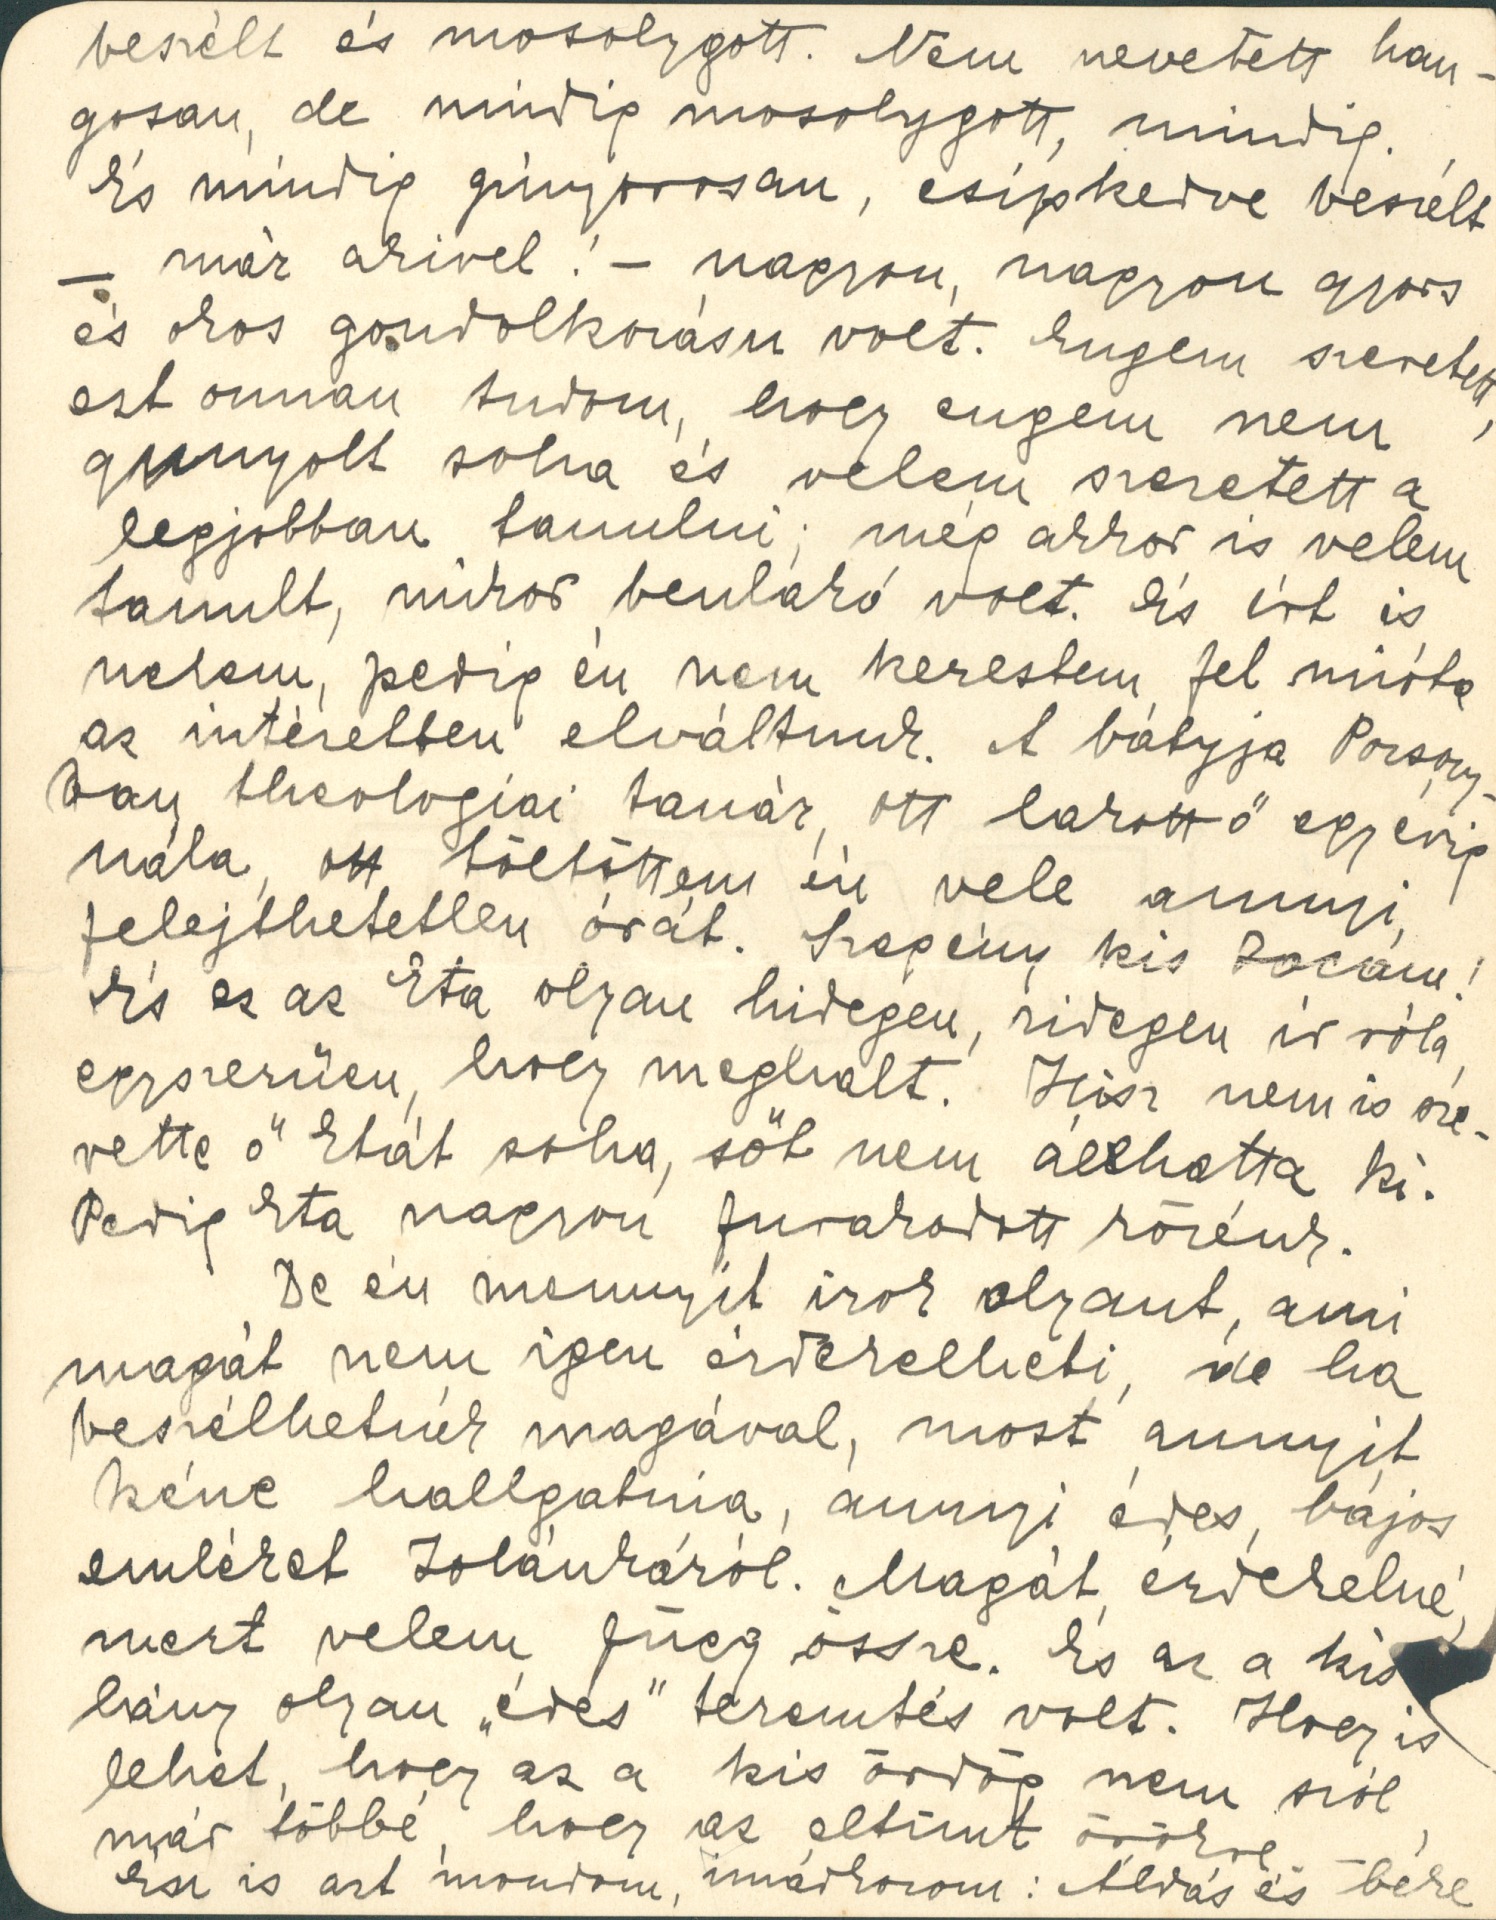 beszélt és mosolygott. Nem nevetett han-
gosan, de mindig mosolygott, mindig.
És mindig gúnyorosan, csípkedve beszélt
– már akivel! – nagyon, nagyon gyors
és okos gondolkozásu volt. Engem szeretett,
ezt onnan tudom, hogy engem nem
gunyolt soha és velem szeretett a
legjobban tanulni; még akkor is velem
tanult, mikor benlakó volt. És írt is
nekem, pedig én nem kerestem fel mióta
az intézetben elváltunk. A bátyja Pozsony-
ban theologiai tanár, ott lakott ő egy évig
nála, ott töltöttem én vele annyi,
felejthetetlen órát. Szegény kis Jocám!
És ez az Eta olyan hidegen, ridegen ír róla,
egyszerüen, hogy meghalt. Hisz nem is sze-
rette ő Etát soha, sőt nem állhatta ki.
Pedig Eta nagyon furakodott közénk.
De én mennyit irok olyant, ami
magát nem igen érdekelheti, de ha
beszélhetnék magával, most annyit
kéne hallgatnia, annyi édes, bájos
emléket Jolánkáról. Magát érdekelné,
mert velem függ össze. És az a kis
lány olyan „édes" teremtés volt. Hogy is
lehet, hogy az a kis ördög nem szól
már többé, hogy az eltünt örökre.
Én is azt mondom, imádkozom: Áldás és béke